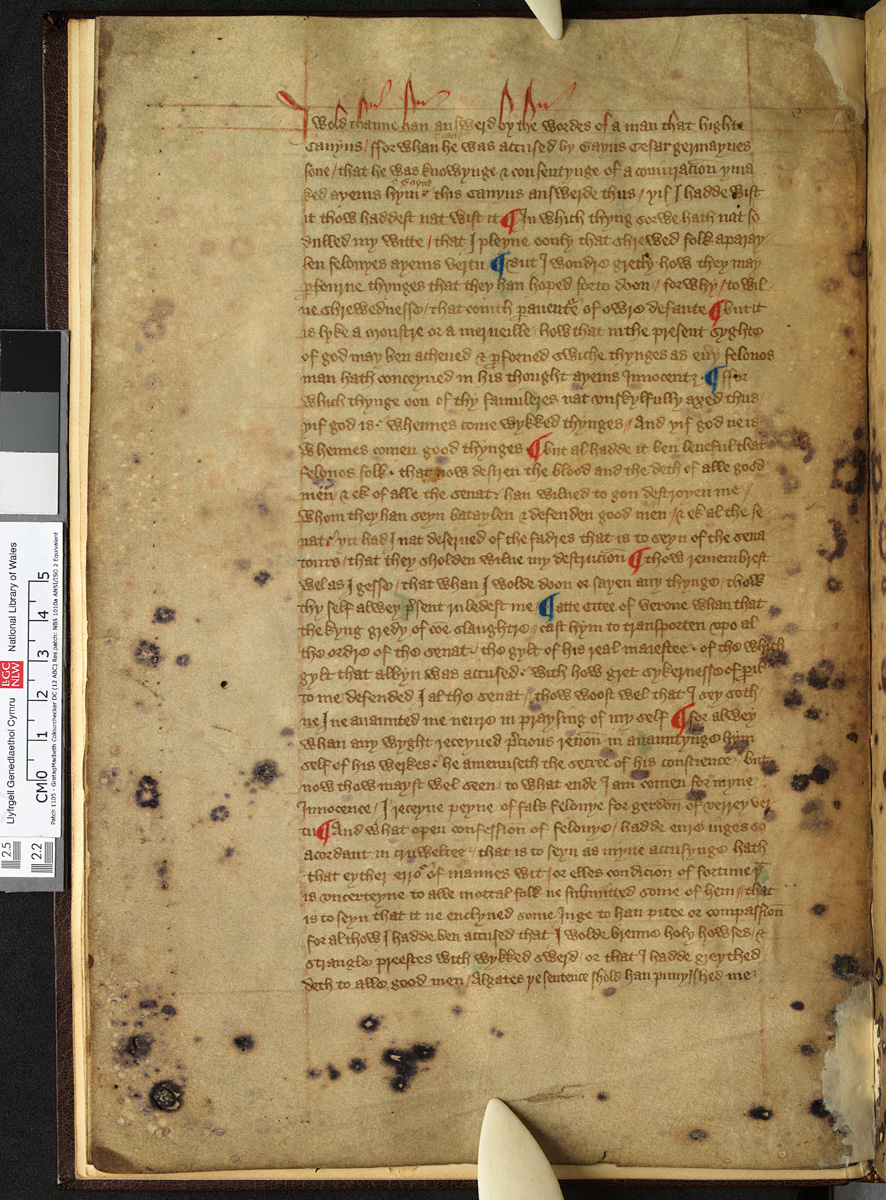 I wold thanne han answerd by the wordes of a man that hight
Canyus / ffor whan he was accused by Gayus Cesar germaynes
sone / that he was knowynge & consentynge of a coniuracion ymaked
ked ayeins hym / this Canyus answerde thus / yif I hadde wist
it thow haddest nat wist it ¶ In which thyng sorwe hath nat so
dulled my witte / that I pleyne oonly that shrewed folk aparay
len felonyes ayeins vertu ¶ But I wondre gretly how they may
ꝑfourme thynges that they han hoped forto doon / forwhy / to wil
ne shrewednesse / that comth ꝑauenture of owre defaute ¶ but it
is lyke a monstre or a merueille how that in the present syghte
of god may ben acheued & ꝑforned swiche thynges as euery felonos
man hath conceyued in his thought ayeins Innocentz ¶ ffor
which thynge oon of thy famuleres nat vnskylfully axed thus
yif god is whennes come wykked thynges / And yif god ne is
whennes comen good thynges ¶ but al hadde it ben leueful that
felonos folk that now desiren the blood and the deth of alle good
men & ek of alle the senat han wilned to gon destroyen me /
whom they han seyn bataylen & defenden good men / & ek al the se
nat yit had I nat deserued of the fadres that is to seyn of the sena
tours / that they sholden wilne my destrucion ¶ thow remembrest
wel as I gesse / that whan I wolde doon or sayen any thynge / thow
thy self alwey present ruledest me ¶ atte citee of verone whan that
the kyng gredy of comune slaughtre cast hym to transporten vpo al
the ordre of the senat the gylt of his real maiestee of the which
gylt that albyn was accused with how gret sykernesse of peril
to me defended I al the senat / thow woost wel that I sey soth
ne I ne auaunted me neuere in praysing of my self ¶ for alwey
whan any wyght receyued precious renoun in auauntynge hym
self of his werkes he amenuseth the secree of his conscience but
now thow mayst wel seen to what ende I am comen for myne
Innocence / I receyue peyne of fals felonye for gerdon of verrey ver
tu ¶ And what open confession of felonye / hadde euere iuges so
acordant in cruweltee / that is to seyn as myne accusynge hath
that eyther errour of mannes wit / or elles condicion of fortune þt
is vncerteyne to alle mortal folk ne submitted some of hem / that
is to seyn that it ne enclyned some Iuge to han pitee or compassion
for al thow I hadde ben accused that I wolde brenne holy howses / &
strangle preestes with wykked swerd / or that I hadde greythed
deth to alle good men / Algates þe sentence shold han punysshed me
Llyfrgell Genedlaethol Cymru
LLGC
NLW
National Library of Wales
CM 0 1 2 3 4 5
2.5
2.2